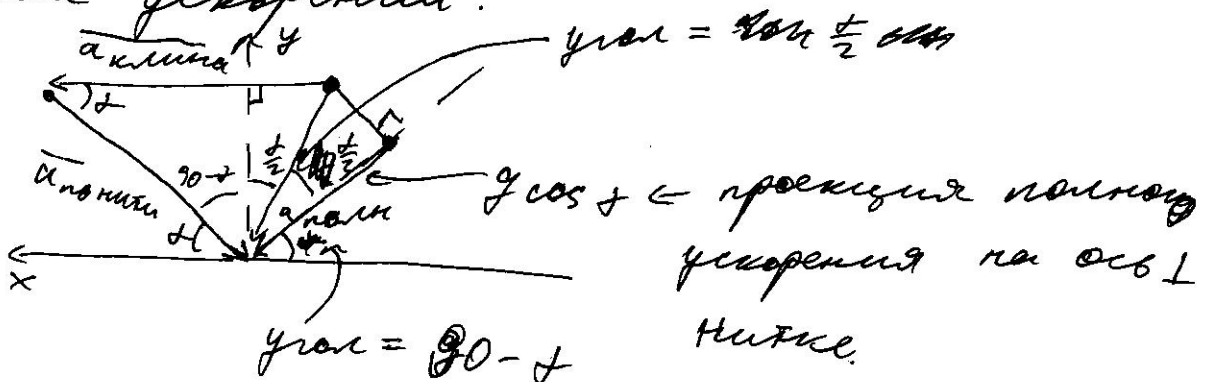 ускорений.
a клина
y
угол = α/2
α
a по нити
90-α
α/2
α/2
a полн
g cos α ← проекция полного
ускорения на ось ⊥
нитке.
α
x
угол = 90 - α